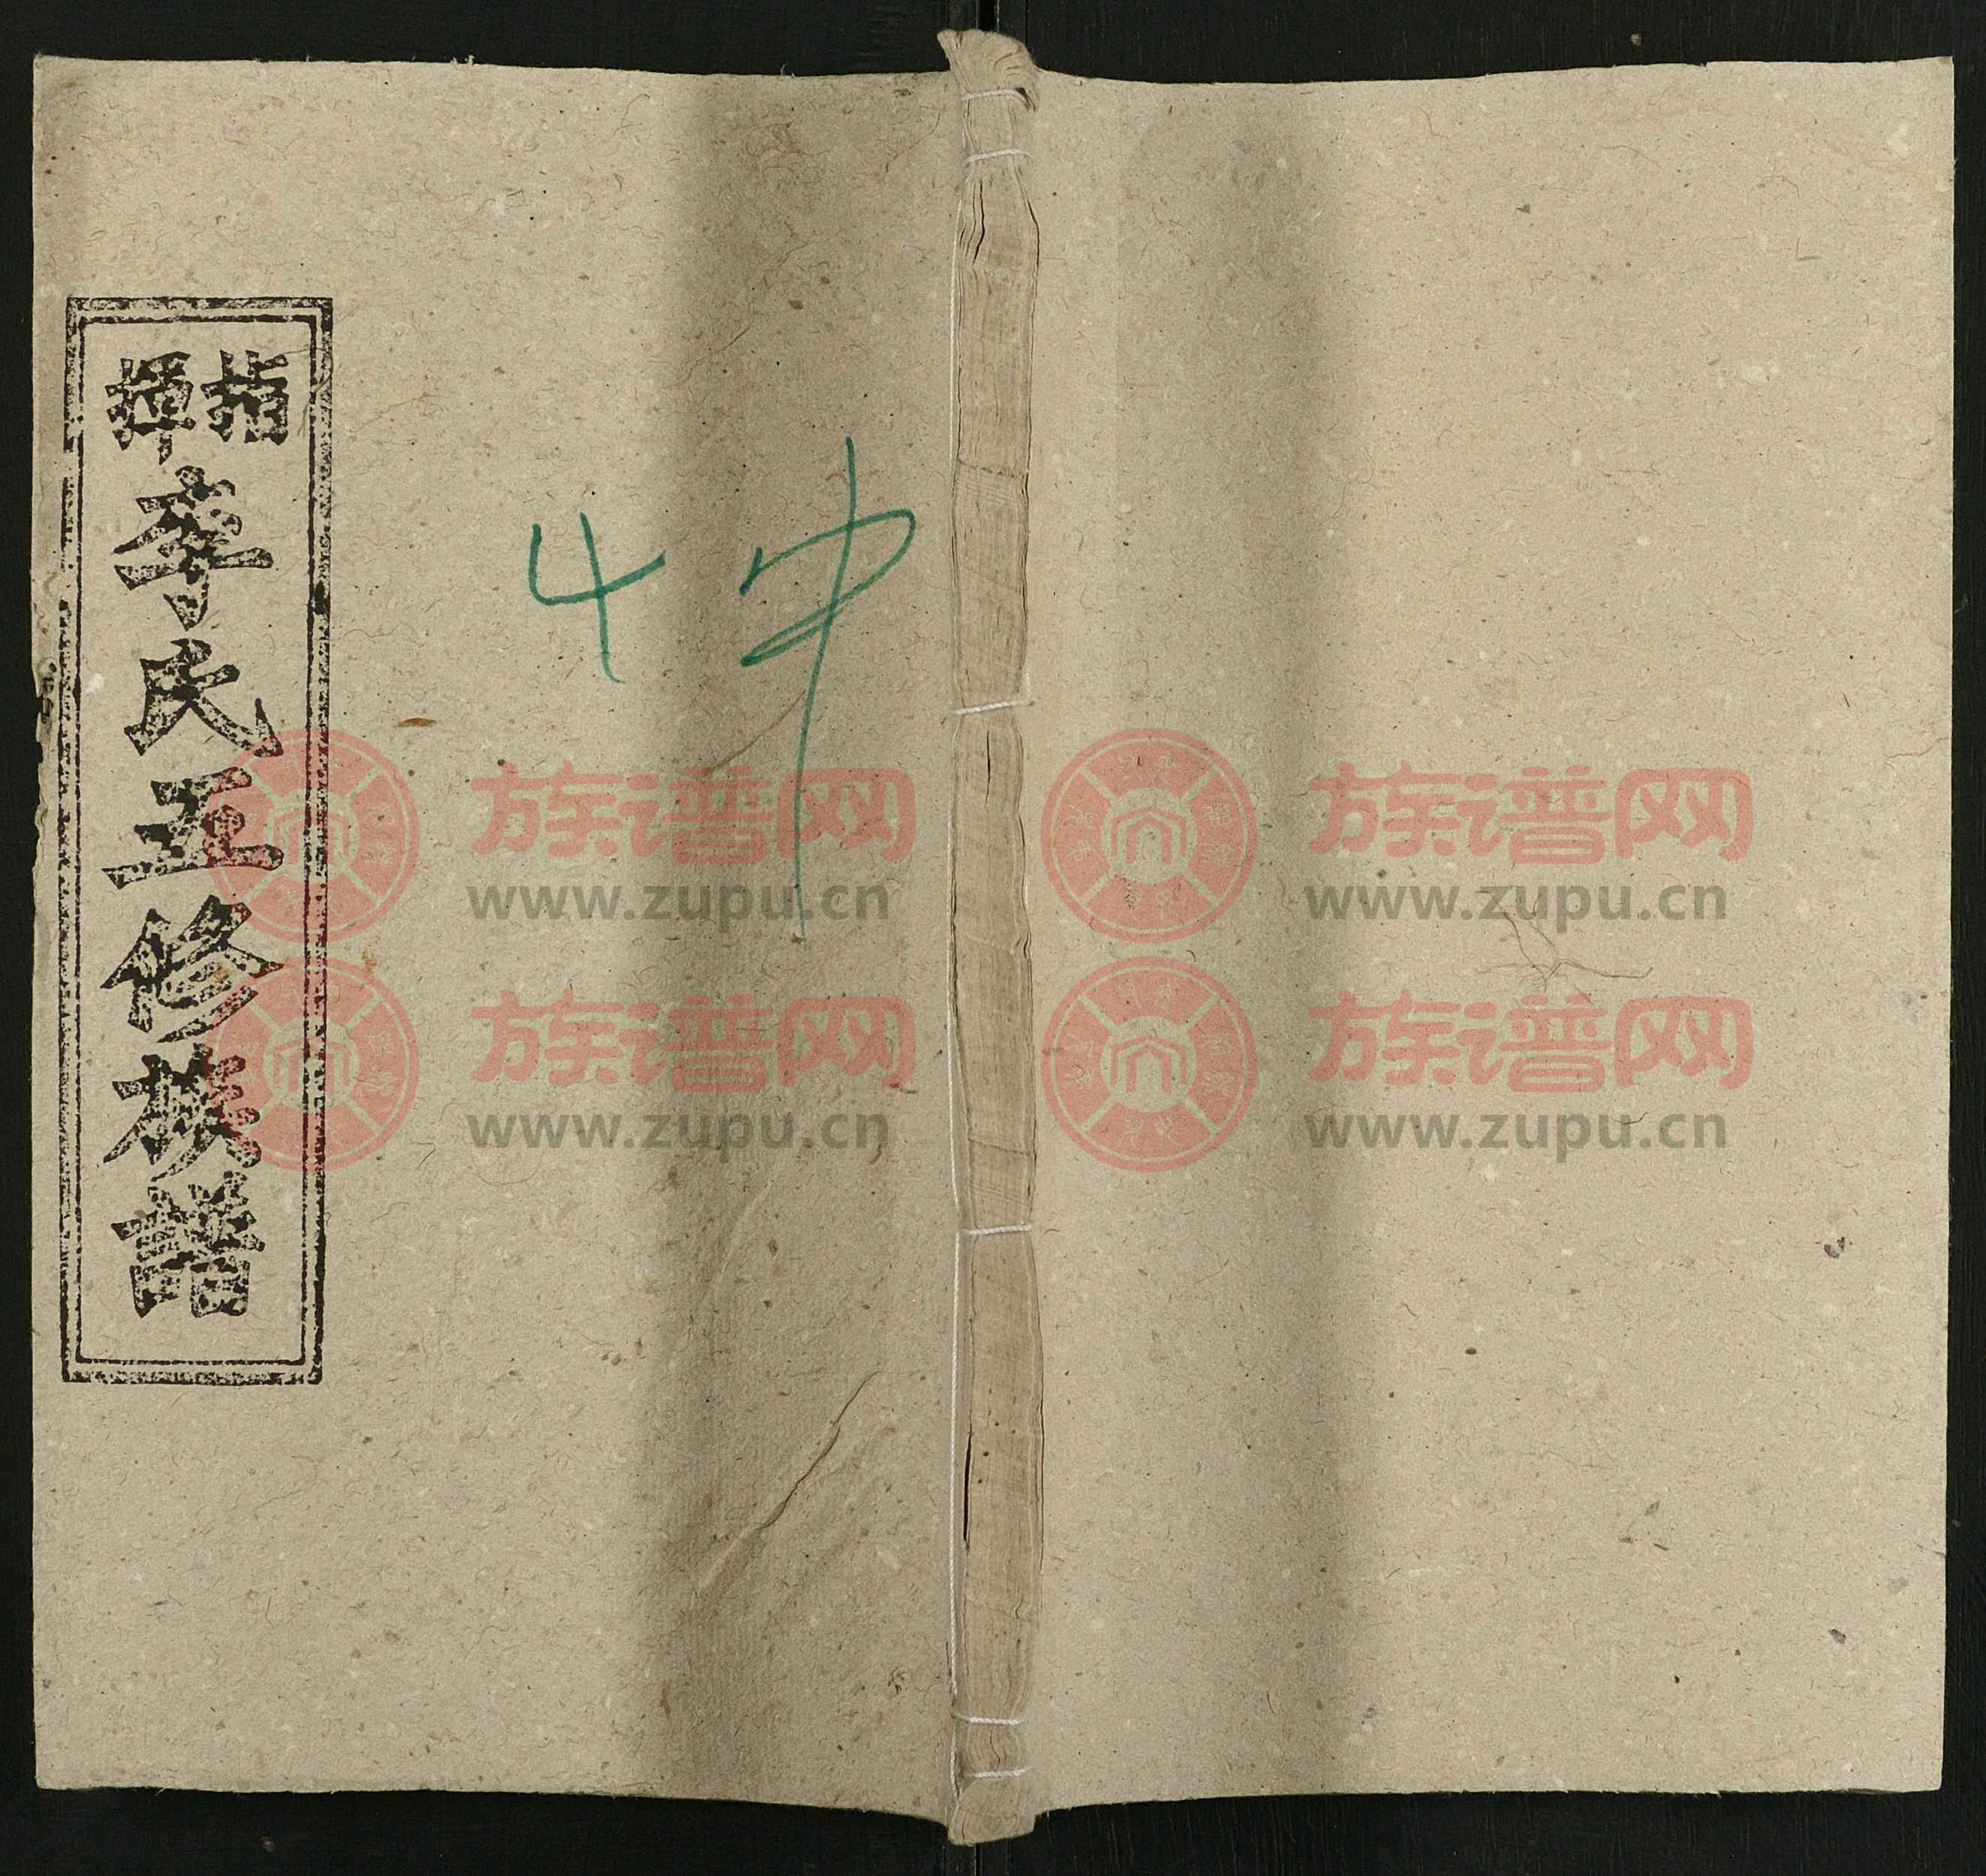 指揮李氏五修族譜
4
族谱网 族谱网
www.zupu.cn www.zupu.cn
族谱网 族谱网
www.zupu.cn www.zupu.cn